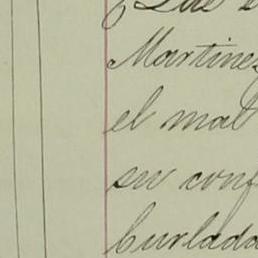 Que
Martinez
el mal
su conf
burlada